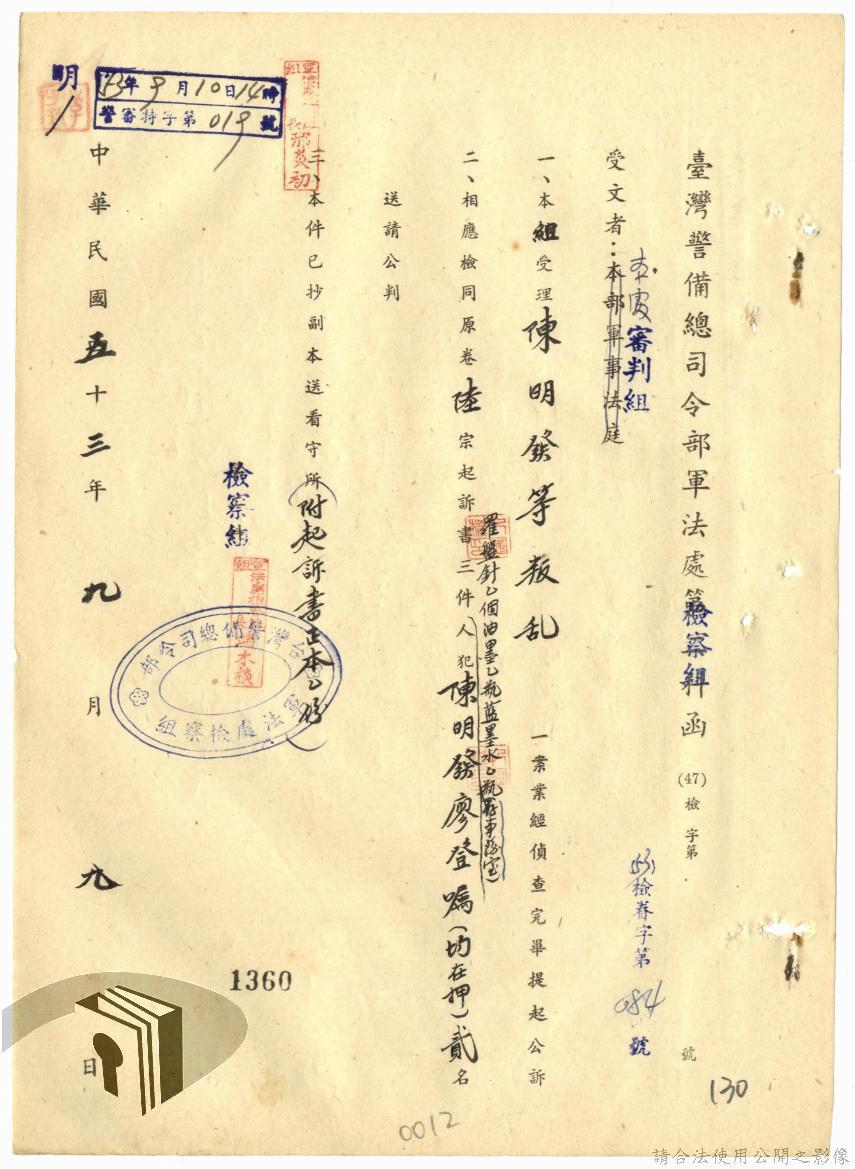 臺灣警備總司令部軍法處檢察組函
(47)檢字第　號
(53)檢眷字第084號
受文者：本部軍事法庭
本處審判組
一、本組受理陳明發等叛乱一案業經偵查完畢提起公訴
二、相應檢同原卷陸宗起訴書三件人犯陳明發廖登嘱（均在押）貳名
羅盤針乙個油墨乙瓶藍墨水乙瓶
送請公判
三、本件已抄副本送看守所（附起訴書正本乙份）
檢察組
台灣警備總司令部
軍法處檢察組
中華民國五十三年九月九日
53年9月10日14時
警審特字第019號
邢炎初
明
1360
130
0012
請合法使用公開之影像